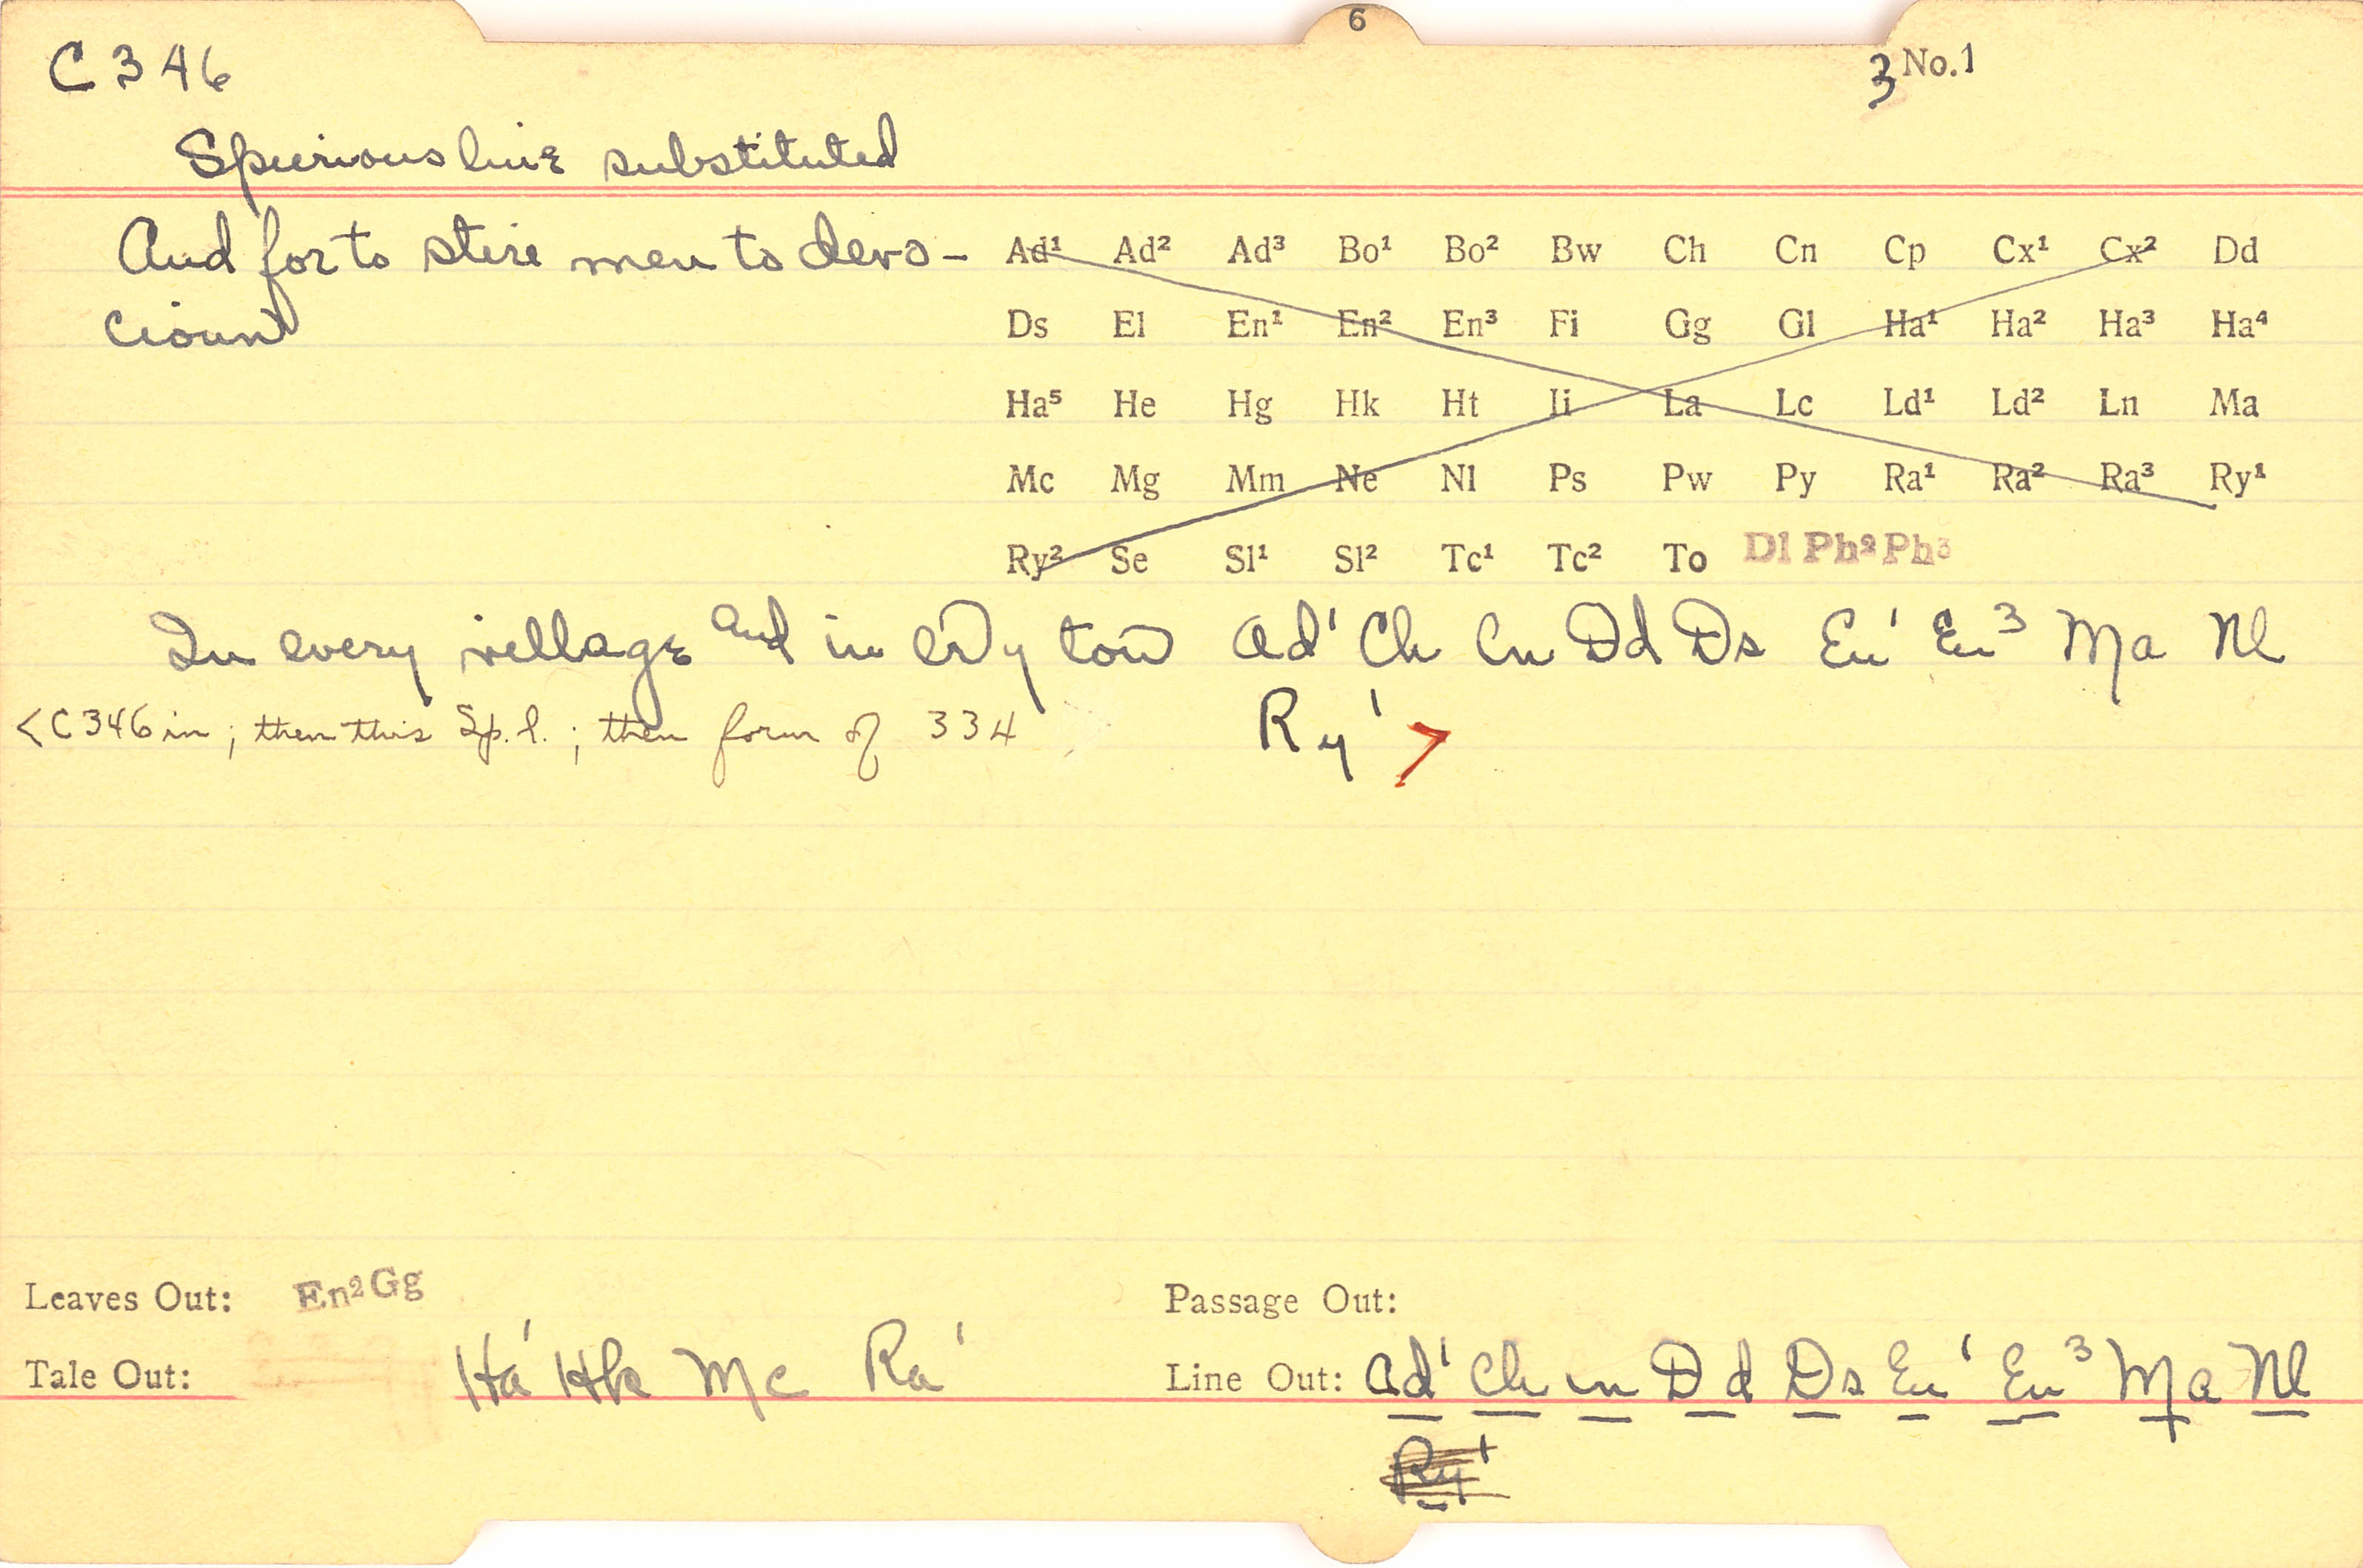 6
C 346
3 No. 1
Spurious line substituted
And for to stire men to devo-
cioun
Ad¹ Ad² Ad³ Bo¹ Bo² Bw Ch Cn Cp Cx¹ Cx² Dd
Ds El En¹ En² En³ Fi Gg Gl Ha¹ Ha² Ha³ Ha⁴
Ha⁵ He Hg Hk Ht Ii La Lc Ld¹ Ld² Ln Ma
Mc Mg Mm Ne Nl Ps Pw Py Ra¹ Ra² Ra³ Ry¹
Ry² Se Sl¹ Sl² Tc¹ Tc² To Dl Ph² Ph³
In every village and in toū Ad¹ Ch Cn Dd Ds En¹ En³ Ma Nl
Ry¹ >
< C 346 in ; then this Sp. l. ; then form of 334
Leaves Out: En² Gg
Passage Out:
Tale Out: Ha¹ Hk Mc Ra¹
Line Out: Ad¹ Ch Cn Dd Ds En¹ En³ Ma Nl
Ry¹